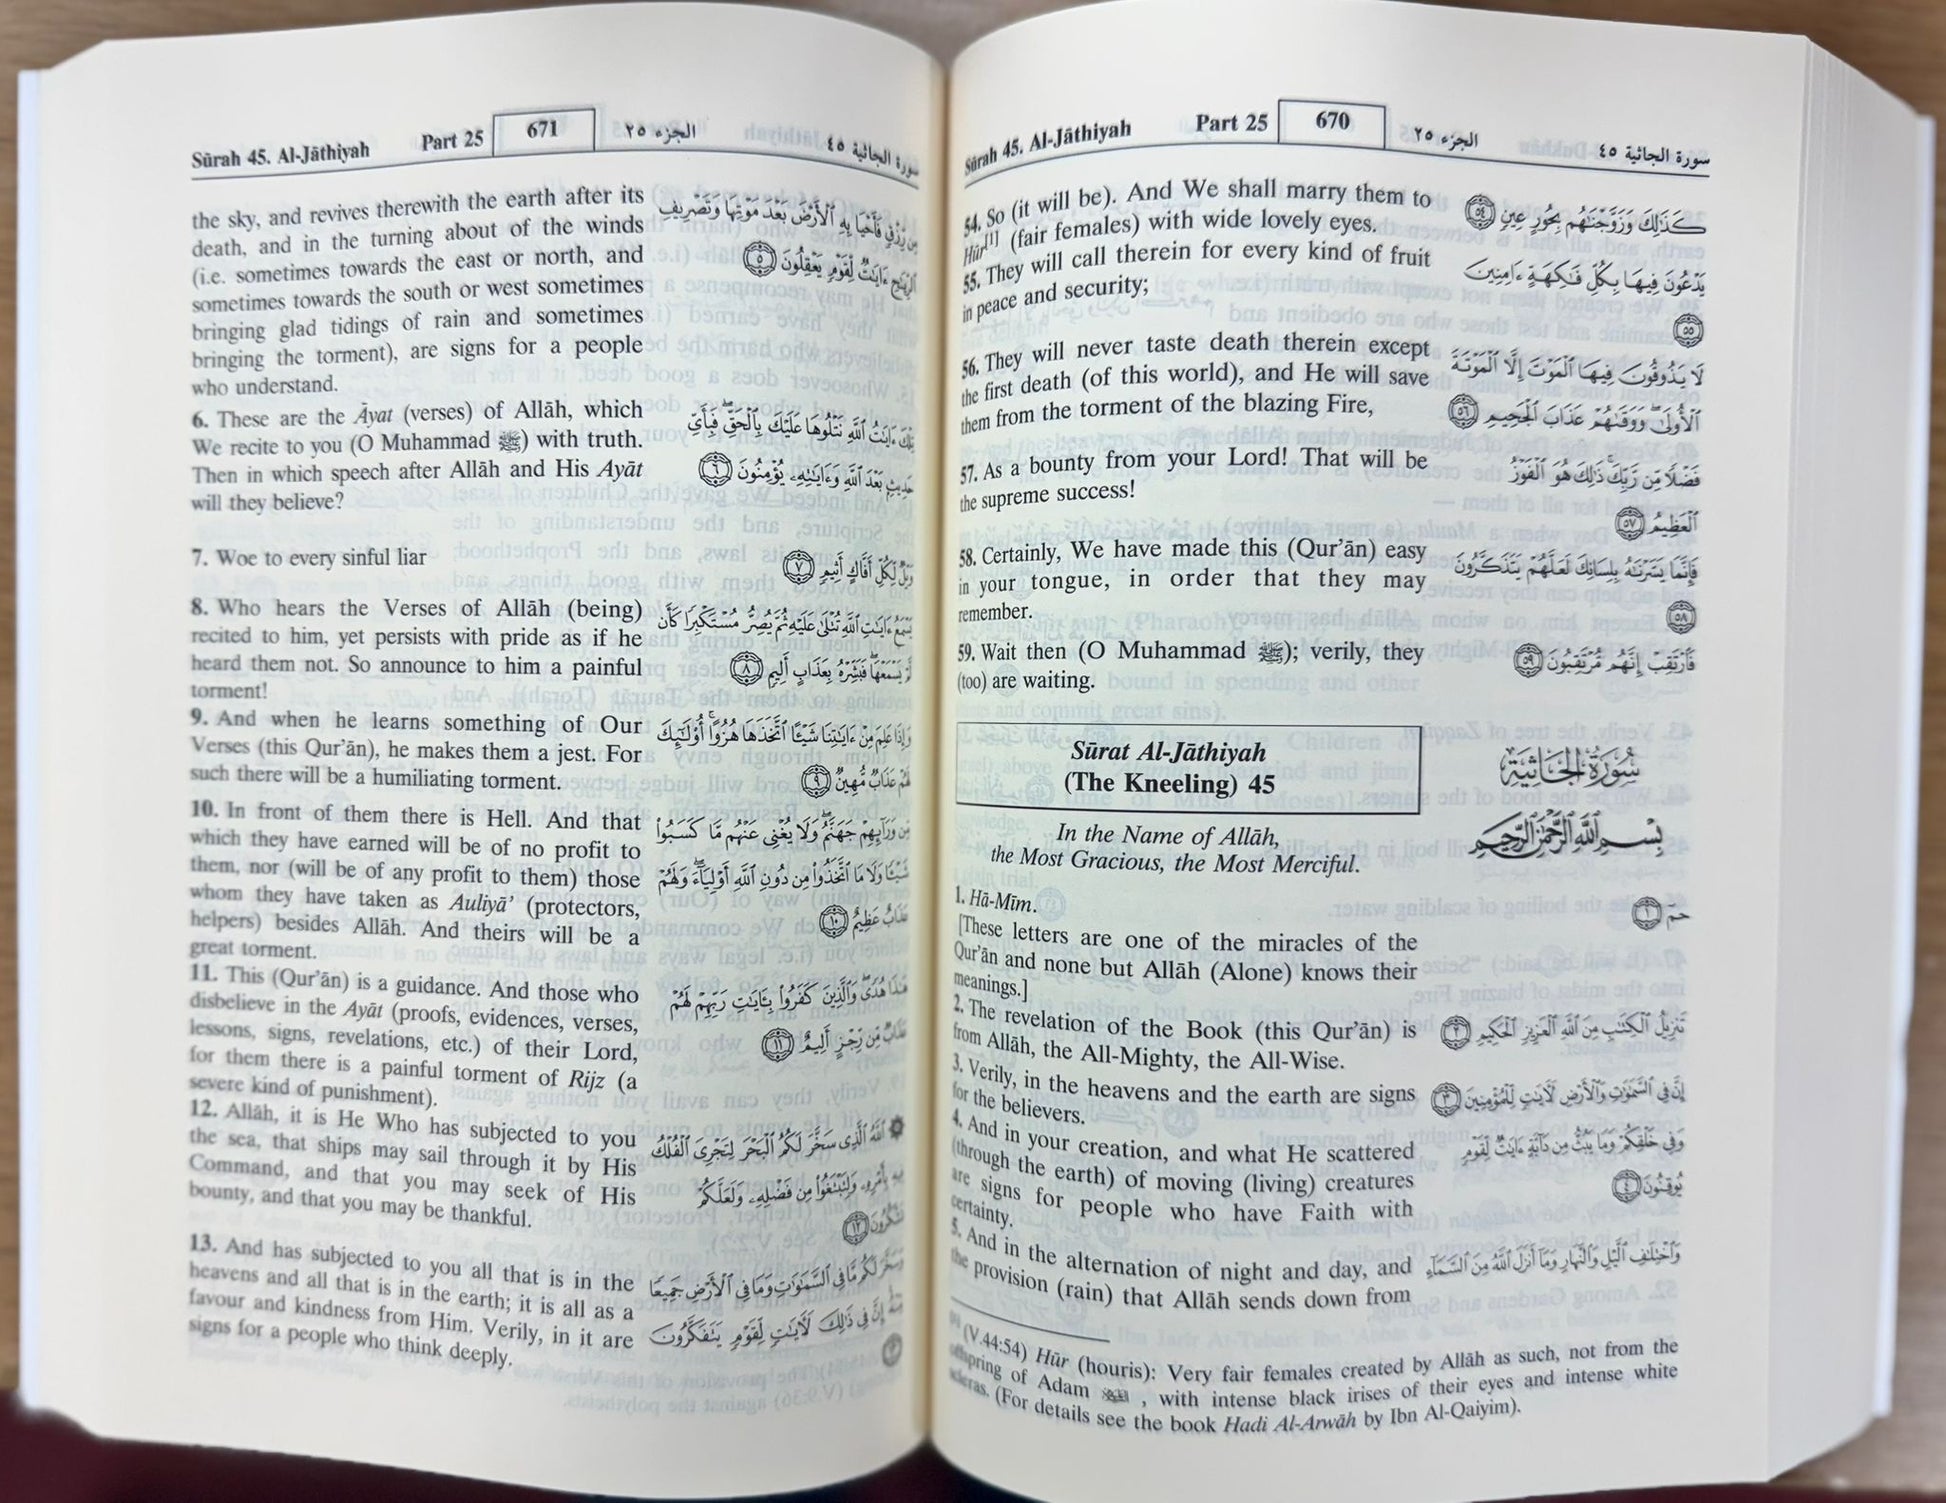 Sūrah 45. Al-Jāthiyah
Part 25
670
الجزء ٢٥
سورة الجاثية ٤٥
54. So (it will be). And We shall marry them to
Hūr[1] (fair females) with wide lovely eyes.
55. They will call therein for every kind of fruit
in peace and security;
56. They will never taste death therein except
the first death (of this world), and He will save
them from the torment of the blazing Fire,
57. As a bounty from your Lord! That will be
the supreme success!
58. Certainly, We have made this (Qur’ān) easy
in your tongue, in order that they may
remember.
59. Wait then (O Muhammad ﷺ); verily, they
(too) are waiting.
كَذَٰلِكَ وَزَوَّجْنَٰهُم بِحُورٍ عِينٍ ٥٤
يَدْعُونَ فِيهَا بِكُلِّ فَٰكِهَةٍ ءَامِنِينَ
٥٥
لَا يَذُوقُونَ فِيهَا ٱلْمَوْتَ إِلَّا ٱلْمَوْتَةَ
ٱلْأُولَىٰ ۖ وَوَقَىٰهُمْ عَذَابَ ٱلْجَحِيمِ ٥٦
فَضْلًا مِّن رَّبِّكَ ۚ ذَٰلِكَ هُوَ ٱلْفَوْزُ
ٱلْعَظِيمُ ٥٧
فَإِنَّمَا يَسَّرْنَٰهُ بِلِسَانِكَ لَعَلَّهُمْ يَتَذَكَّرُونَ
٥٨
فَٱرْتَقِبْ إِنَّهُم مُّرْتَقِبُونَ ٥٩
Sūrat Al-Jāthiyah
(The Kneeling) 45
سُورَةُ الجَاثِيَةِ
In the Name of Allāh,
the Most Gracious, the Most Merciful.
بِسْمِ ٱللَّهِ ٱلرَّحْمَٰنِ ٱلرَّحِيمِ
1. Hā-Mīm.
[These letters are one of the miracles of the
Qur’ān and none but Allāh (Alone) knows their
meanings.]
2. The revelation of the Book (this Qur’ān) is
from Allāh, the All-Mighty, the All-Wise.
3. Verily, in the heavens and the earth are signs
for the believers.
4. And in your creation, and what He scattered
(through the earth) of moving (living) creatures
are signs for people who have Faith with
certainty.
5. And in the alternation of night and day, and
the provision (rain) that Allāh sends down from
حمٓ ١
تَنزِيلُ ٱلْكِتَٰبِ مِنَ ٱللَّهِ ٱلْعَزِيزِ ٱلْحَكِيمِ ٢
إِنَّ فِى ٱلسَّمَٰوَٰتِ وَٱلْأَرْضِ لَءَايَٰتٍ لِّلْمُؤْمِنِينَ ٣
وَفِى خَلْقِكُمْ وَمَا يَبُثُّ مِن دَآبَّةٍ ءَايَٰتٌ لِّقَوْمٍ
يُوقِنُونَ ٤
وَٱخْتِلَٰفِ ٱلَّيْلِ وَٱلنَّهَارِ وَمَآ أَنزَلَ ٱللَّهُ مِنَ ٱلسَّمَآءِ
[1] (V.44:54) Hūr (houris): Very fair females created by Allāh as such, not from the
offspring of Adam, with intense black irises of their eyes and intense white
scleras. (For details see the book Hadi Al-Arwāh by Ibn Al-Qaiyim).
Sūrah 45. Al-Jāthiyah
Part 25
671
الجزء ٢٥
سورة الجاثية ٤٥
the sky, and revives therewith the earth after its
death, and in the turning about of the winds
(i.e. sometimes towards the east or north, and
sometimes towards the south or west sometimes
bringing glad tidings of rain and sometimes
bringing the torment), are signs for a people
who understand.
6. These are the Āyat (verses) of Allāh, which
We recite to you (O Muhammad ﷺ) with truth.
Then in which speech after Allāh and His Ayāt
will they believe?
7. Woe to every sinful liar
8. Who hears the Verses of Allāh (being)
recited to him, yet persists with pride as if he
heard them not. So announce to him a painful
torment!
9. And when he learns something of Our
Verses (this Qur’ān), he makes them a jest. For
such there will be a humiliating torment.
10. In front of them there is Hell. And that
which they have earned will be of no profit to
them, nor (will be of any profit to them) those
whom they have taken as Auliyā’ (protectors,
helpers) besides Allāh. And theirs will be a
great torment.
11. This (Qur’ān) is a guidance. And those who
disbelieve in the Ayāt (proofs, evidences, verses,
lessons, signs, revelations, etc.) of their Lord,
for them there is a painful torment of Rijz (a
severe kind of punishment).
12. Allāh, it is He Who has subjected to you
the sea, that ships may sail through it by His
Command, and that you may seek of His
bounty, and that you may be thankful.
13. And has subjected to you all that is in the
heavens and all that is in the earth; it is all as a
favour and kindness from Him. Verily, in it are
signs for a people who think deeply.
مِن رِّزْقٍ فَأَحْيَا بِهِ ٱلْأَرْضَ بَعْدَ مَوْتِهَا وَتَصْرِيفِ
ٱلرِّيَٰحِ ءَايَٰتٌ لِّقَوْمٍ يَعْقِلُونَ ٥
تِلْكَ ءَايَٰتُ ٱللَّهِ نَتْلُوهَا عَلَيْكَ بِٱلْحَقِّ ۖ فَبِأَىِّ
حَدِيثٍۭ بَعْدَ ٱللَّهِ وَءَايَٰتِهِۦ يُؤْمِنُونَ ٦
وَيْلٌ لِّكُلِّ أَفَّاكٍ أَثِيمٍ ٧
يَسْمَعُ ءَايَٰتِ ٱللَّهِ تُتْلَىٰ عَلَيْهِ ثُمَّ يُصِرُّ مُسْتَكْبِرًا كَأَن
لَّمْ يَسْمَعْهَا ۖ فَبَشِّرْهُ بِعَذَابٍ أَلِيمٍ ٨
وَإِذَا عَلِمَ مِنْ ءَايَٰتِنَا شَيْـًٔا ٱتَّخَذَهَا هُزُوًا ۚ أُو۟لَٰٓئِكَ
لَهُمْ عَذَابٌ مُّهِينٌ ٩
مِّن وَرَآئِهِمْ جَهَنَّمُ ۖ وَلَا يُغْنِى عَنْهُم مَّا كَسَبُوا۟
شَيْـًٔا وَلَا مَا ٱتَّخَذُوا۟ مِن دُونِ ٱللَّهِ أَوْلِيَآءَ ۖ وَلَهُمْ
عَذَابٌ عَظِيمٌ ١٠
هَٰذَا هُدًى ۖ وَٱلَّذِينَ كَفَرُوا۟ بِـَٔايَٰتِ رَبِّهِمْ لَهُمْ
عَذَابٌ مِّن رِّجْزٍ أَلِيمٌ ١١
۞ ٱللَّهُ ٱلَّذِى سَخَّرَ لَكُمُ ٱلْبَحْرَ لِتَجْرِىَ ٱلْفُلْكُ
فِيهِ بِأَمْرِهِۦ وَلِتَبْتَغُوا۟ مِن فَضْلِهِۦ وَلَعَلَّكُمْ
تَشْكُرُونَ ١٢
وَسَخَّرَ لَكُم مَّا فِى ٱلسَّمَٰوَٰتِ وَمَا فِى ٱلْأَرْضِ جَمِيعًا
مِّنْهُ ۚ إِنَّ فِى ذَٰلِكَ لَءَايَٰتٍ لِّقَوْمٍ يَتَفَكَّرُونَ